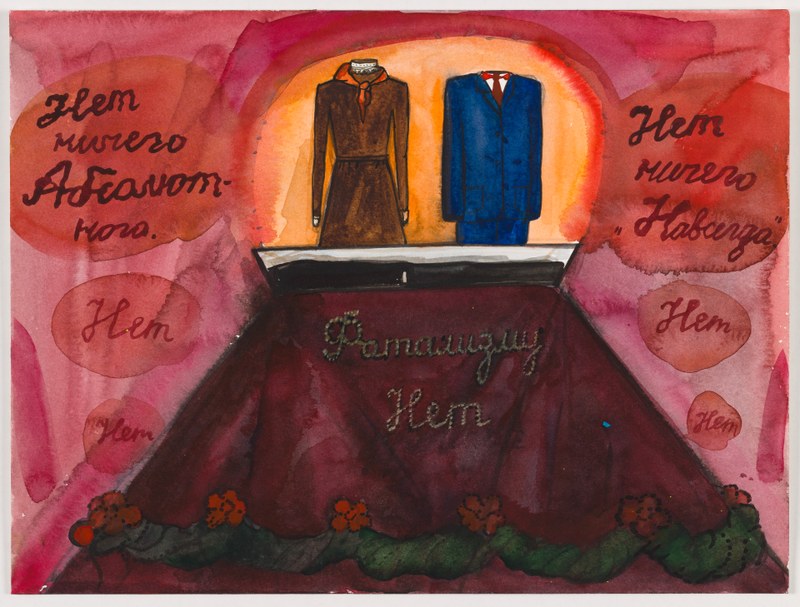 Нет
ничего
Абсолют-
ного.
Нет
Нет
Фатализму
Нет
Нет
ничего
"Навсегда"
Нет
Нет